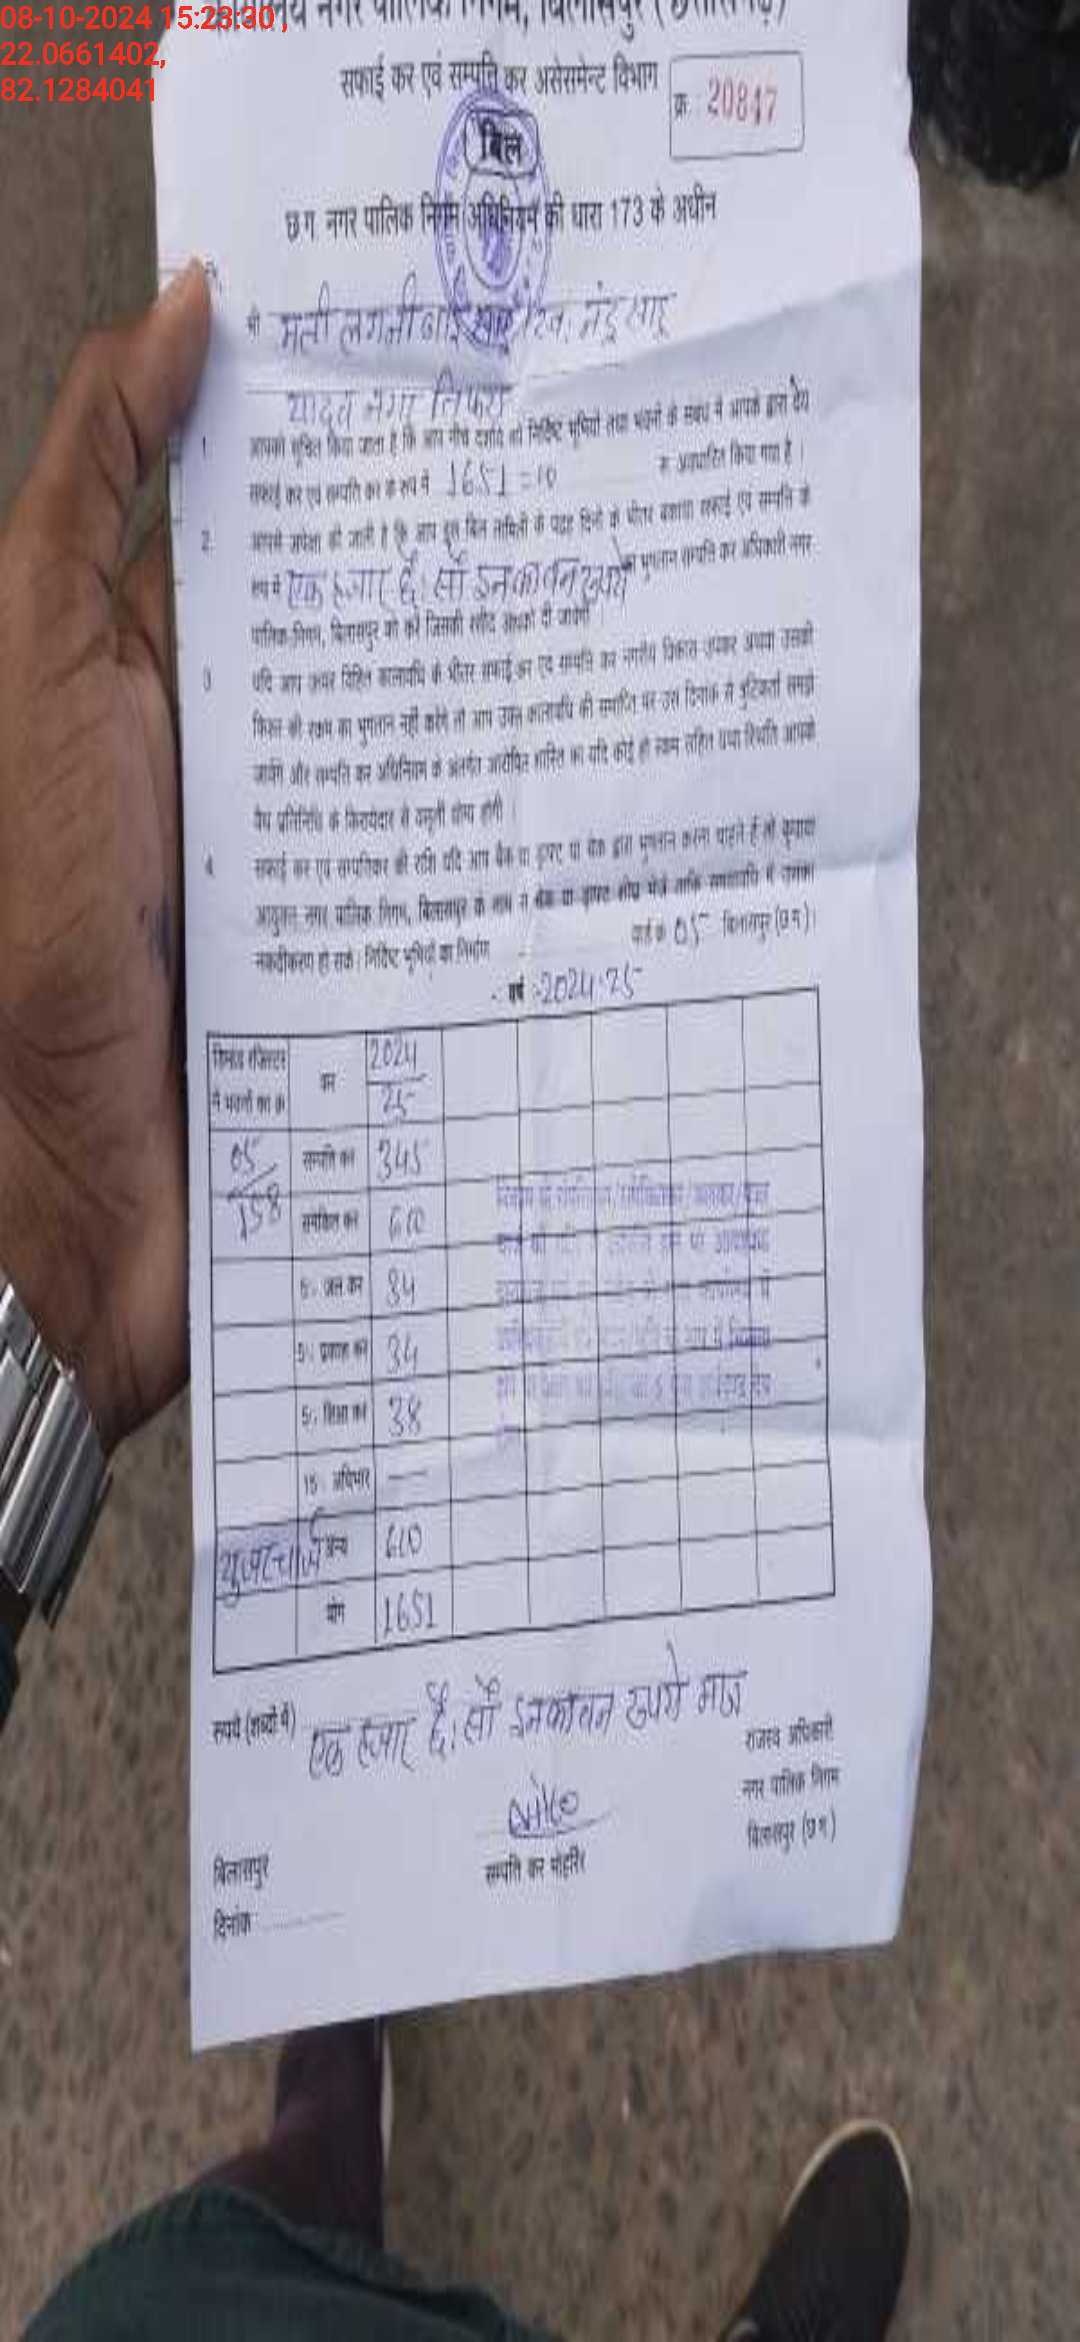 08-10-2024 15:23:30 ,
22.0661402,
82.1284041
नगर पालिक निगम, बिलासपुर (छत्तीसगढ़)
सफाई कर एवं सम्पत्ति कर असेसमेन्ट विभाग
क्र. 20847
बिल
छ ग नगर पालिक निगम अधिनियम की धारा 173 के अधीन
यादव नगर तिफरा
1 आपको सूचित किया जाता है कि आप नीचे दर्शाये गये निर्दिष्ट भूमियों तथा भवनों के संबंध में आपके द्वारा देय
सफाई कर एवं सम्पत्ति कर के रुप में 1651=10 रू अवधारित किया गया है ।
2 आपसे अपेक्षा की जाती है कि आप इस बिल तामिली के पंद्रह दिनों के भीतर बकाया सफाई एवं सम्पत्ति के
रुप में एक हजार छै: सौ इनकावन रुपये का भुगतान सम्पत्ति कर अधिकारी नगर
पालिक निगम, बिलासपुर को करें जिसकी रसीद आपको दी जावेगी
3 यदि आप ऊपर विहित कालावधि के भीतर सफाई कर एवं सम्पत्ति कर नगरीय विकास उपकर अथवा उसकी
किस्त की रकम का भुगतान नहीं करेंगे तो आप उक्त कालावधि की समाप्ति पर उस दिनांक से त्रुटिकर्ता समझे
जावेंगे और सम्पत्ति कर अधिनियम के अंतर्गत आरोपित शास्ति का यदि कोई हो रकम सहित यथा स्थिति आपके
वैध प्रतिनिधि के किरायेदार से वसूली योग्य होगी ।
4 सफाई कर एवं सम्पत्तिकर की राशि यदि आप बैंक या ड्राफ्ट या चेक द्वारा भुगतान करना चाहते हैं तो कृपया
आयुक्त नगर पालिक निगम, बिलासपुर के नाम से चेक या ड्राफ्ट शीघ्र भेजें ताकि समयावधि में उसका
नकदीकरण हो सके । निर्दिष्ट भूमियों का निर्माण वार्ड क्र 05 बिलासपुर (छ ग)।
वर्ष :-2024-25
डिमांड रजिस्टर में भवनों का क्र कर 2024/25
05/158 सम्पत्ति कर 345
समेकित कर 610
5% जल कर 34
5% प्रकाश कर 34
5% शिक्षा कर 38
15% अधिभार —
यूजर चार्ज अन्य 610
योग 1651
रूपये (शब्दों में) एक हजार छै: सौ इनकावन रुपये मात्र
राजस्व अधिकारी
नगर पालिक निगम
बिलासपुर (छ ग)
सम्पत्ति कर मोहर्रिर
बिलासपुर
दिनांक